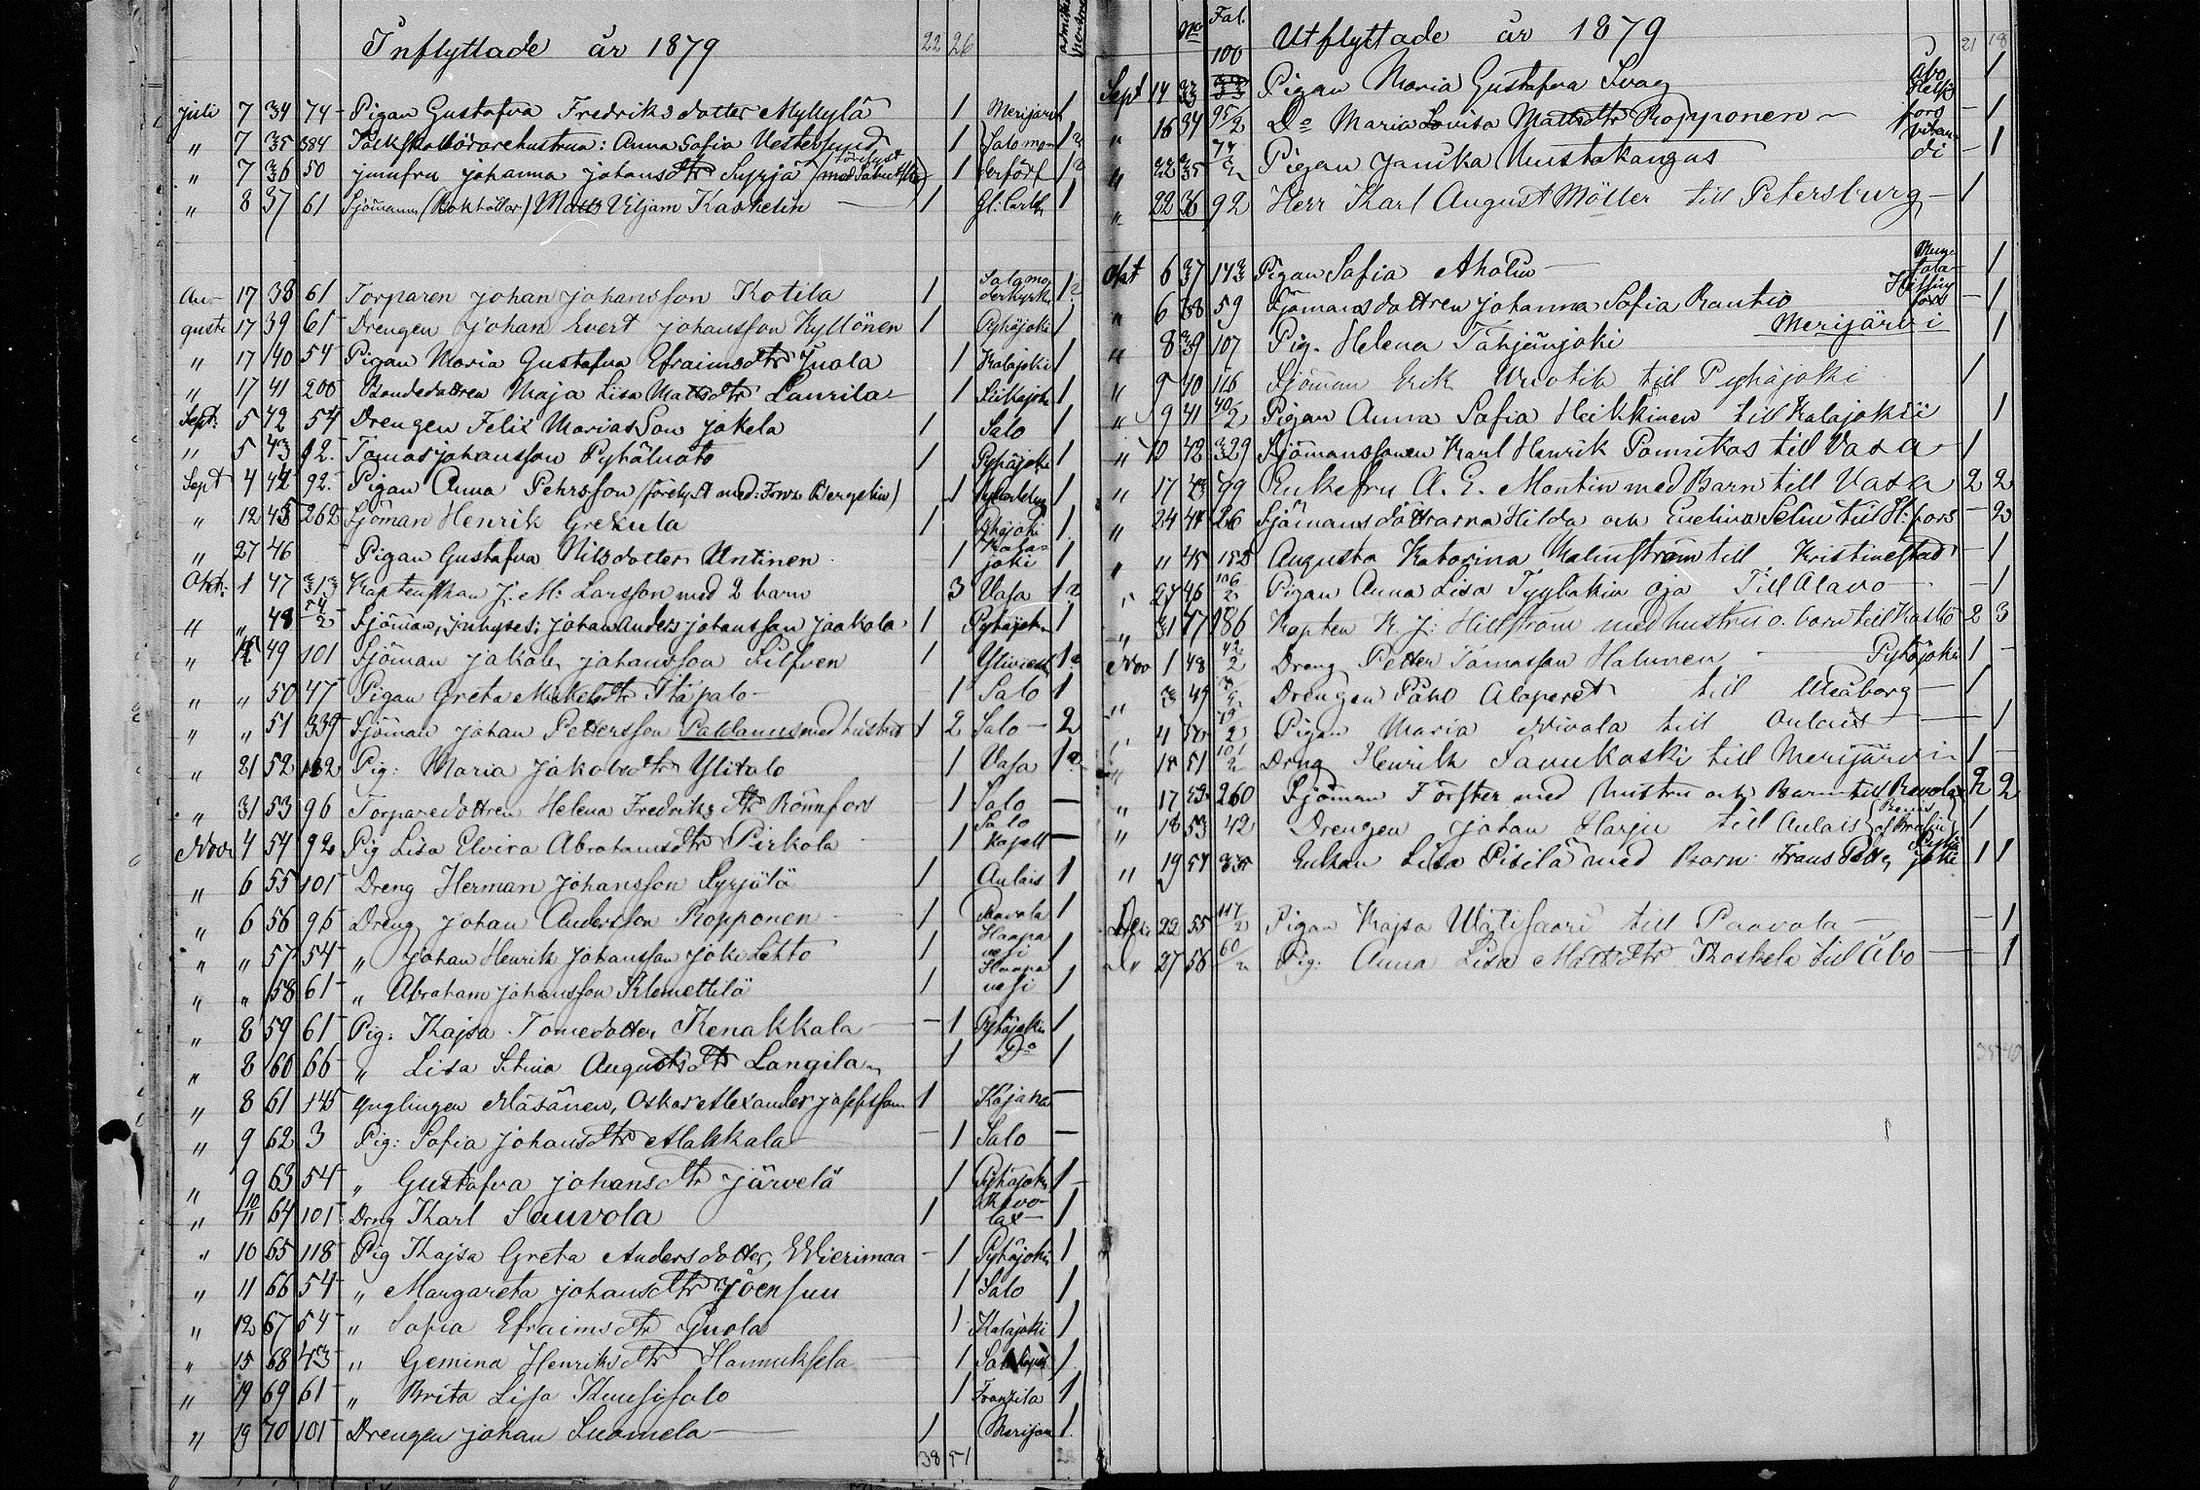 Inflyttade år 1879 22 26
Juli 7 34 74 Pigan Gustafva Fredriksdotter Myllylä 1 Merijärvi 1
" 7 35 384 Folkskollärarehustrun: Anna Sofia Vesterlund 1 Salo
" 7 36 50 jmnfru Johanna Johansdtr Syrjä 1
" 8 37 61 Sjömann (Bokhållar) Matts Viljam Kaskelin 1 Gl: Carleby 1
Au- 17 38 61 Torparen Johan Johansson Kotila 1 Salo moderkyrka 1
gusti 17 39 61 Drengen Johan Evert Johansson Kyllönen 1 Pyhäjoki 1
" 17 40 54 Pigan Maria Gustafva Efraimsdtr Juola 1 Kalajoki 1
" 17 41 200 Bondedottren Maja Lisa Mattsdtr Laurila 1 Siikajoki 1
Sept: 5 42 54 Drengen Felix Mariasson Jokela 1 Salo 1
" 5 43 92 Tomas Johansson Pyhäluoto 1 Pyhäjoki 1
Sept 4 44 92 Pigan Anna Pehrsson 1 1
" 12 45 262 Sjöman Henrik Grekula 1 Pyhäjoki 1
" 27 46 Pigan Gustafva Nilsdotter Untinen 1 Kalajoki 1
Oktr: 1 47 313 Kaptenskan J. M: Larsson med 2 barn 3 Vasa 1
" " 48 54/2 Sjöman, inhyses: Johan Anders Johansson Jaakola 1 Pyhäjoki 1
" 15 49 101 Sjöman Jakob Johansson Kilfven 1 Ylivieska 1
" " 50 47 Pigan Greta Mickelsdtr Itäpalo 1 Salo 1
" " 51 339 Sjöman Johan Pettersson Paldanius med hustru 1 2 Salo 2
" 21 52 Pig: Maria Jakobsdtr Ylitalo 1 Vasa 1
" 31 53 96 Torparedottren Helena Fredriksdtr Rönnfors 1 Salo
Novr 4 54 92 Pig Lisa Elvira Abrahamsdtr Pirkola 1 Salo Kapell
" 6 55 101 Dreng Herman Johansson Syrjälä 1 Aulais 1
" 6 56 96 Dreng Johan Andersson Ropponen 1 Paavola 1
" " 57 54 " Johan Henrik Johansson Jokilehto 1 Haapavesi 1
" " 58 61 " Abraham Johansson Klemettilä 1 Haapavesi 1
" 8 59 61 Pig: Kajsa Tomedotter Kenakkala 1 Pyhäjoki 1
" 8 60 66 " Lisa Stina Augustsdtr Langila 1 Do 1
" 8 61 145 Ynglingen Mäsänen, Oskar Alexander Josefsson 1 Kajana
" 9 62 3 Pig: Sofia Johansdtr Alakkala 1 Salo
" 9 63 54 " Gustafva Johansdtr Järvelä 1 Pyhäjoki 1
" 10/11 64 101 Drng Karl Sauvola 1 1
" 10 65 118 Pig Kajsa Greta Andersdotter Wierimaa 1 Pyhäjoki 1
" 11 66 54 " Margareta Johansdtr Joensuu 1 Salo 1
" 12 67 54 " Sofia Efraimsdtr Juola 1 Kalajoki 1
" 15 68 43 " Gemina Henriksdtr Hannuksela 1 Salo 1
" 19 69 61 " Brita Lisa Kuusisalo 1 Frantsila 1
" 19 70 101 Drengen Johan Luomela 1 Merijärvi 1
38 51
No Fol. Utflyttade år 1879 21 18
Sept 14 33 100 Pigan Maria Gustafva Svag Åbo 1
" 16 34 95/2 Do Maria Lovisa Mattsdtr Ropponen Helsfors 1
" 22 35 Pigan Janika Mustakangas Vihandi 1
" 22 36 92 Herr Karl August Möller till Petersburg 1
Okt 6 37 143 Pigan Sofia Aholin 1
" 6 38 59 Sjömansdottren Johanna Sofia Rautio Helsingfors 1
" 8 39 107 Pig. Helena Tähjänjoki Merijärvi 1
" 9 40 116 Sjöman Erik Wiotik till Pyhäjoki 1
" 9 41 40/2 Pigan Anna Sofia Heikkinen till Kalajoki 1
" 10 42 329 Sjömanssonen Karl Henrik Pannikas till Vasa 1
" 17 43 99 Enkefru A. E. Montin med Barn till Vasa 2 2
" 24 44 26 Sjömansdöttrarna Hilda och Evelina Selin till H:fors 2
" " 45 152 Augusta Katarina Malmström till Kristinestad 1
" 27 46 106/2 Pigan Anna Lisa Tyybäkinoja Till Alavo 1
" 31 47 186 Kapten K. J: Hillström med hustru o. barn till Kaskö 2 3
Nov 1 48 42/2 Dreng Petter Tomasson Halunen Pyhäjoki 1
" 3 49 Drengen Påhl Alaperet till Uleåborg 1
" 11 50 79/2 Pigan Maria Nivala till Aulais 1
" 15 51 101/2 Drng Henrik Savukoski till Merijärvi 1
" 17 52 260 Sjöman Förster med Hustru och Barn till Revolax 2 2
" 18 53 42 Drengen Johan Harju till Aulais 1
" 19 54 35 Enkan Lisa Pisilä med Barn: Frans Petter Pyhäjoki 1 1
Dec 22 55 117/2 Pigan Kajsa Ulajissaari till Paavola 1
" 27 56 60/2 Pig: Anna Lisa Mattsdtr Koskela till Åbo 1
35 40